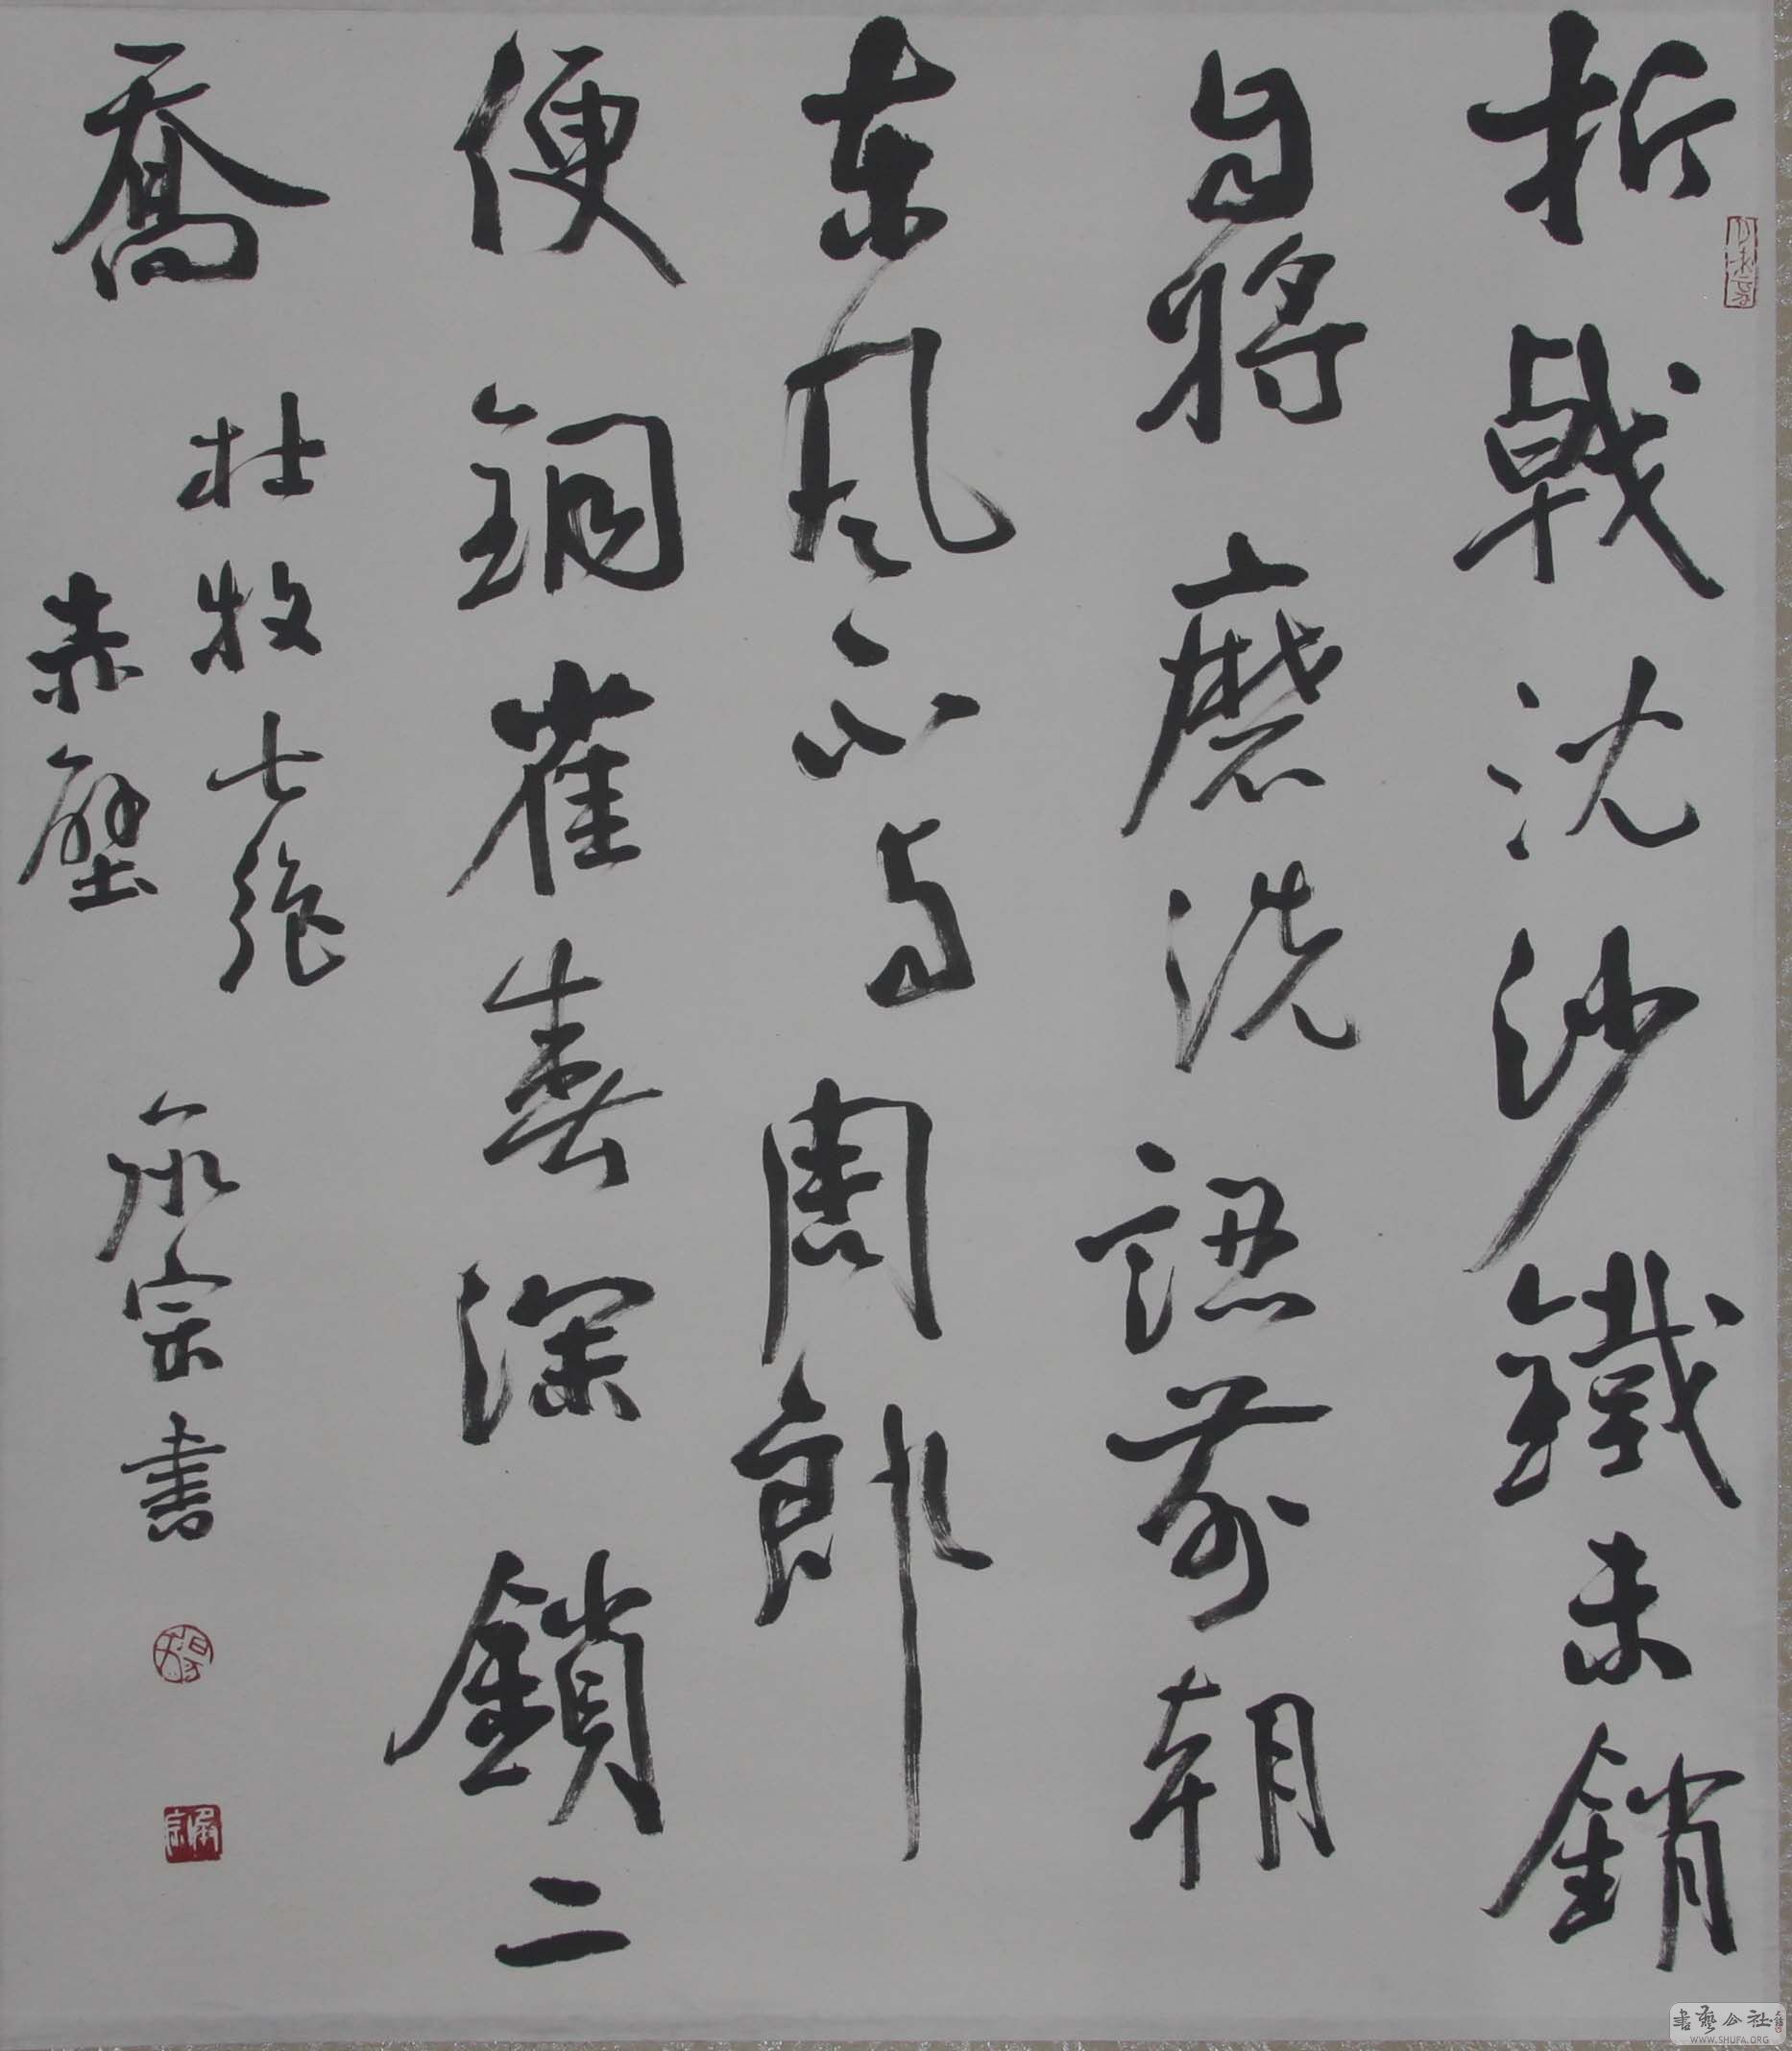 折戟沈沙鐵未銷
自將磨洗認前朝
東風不与周郎
便銅雀春深鎖二
喬
杜牧七絕
赤壁
承宗書
書藝公社
WWW.SHUFA.ORG